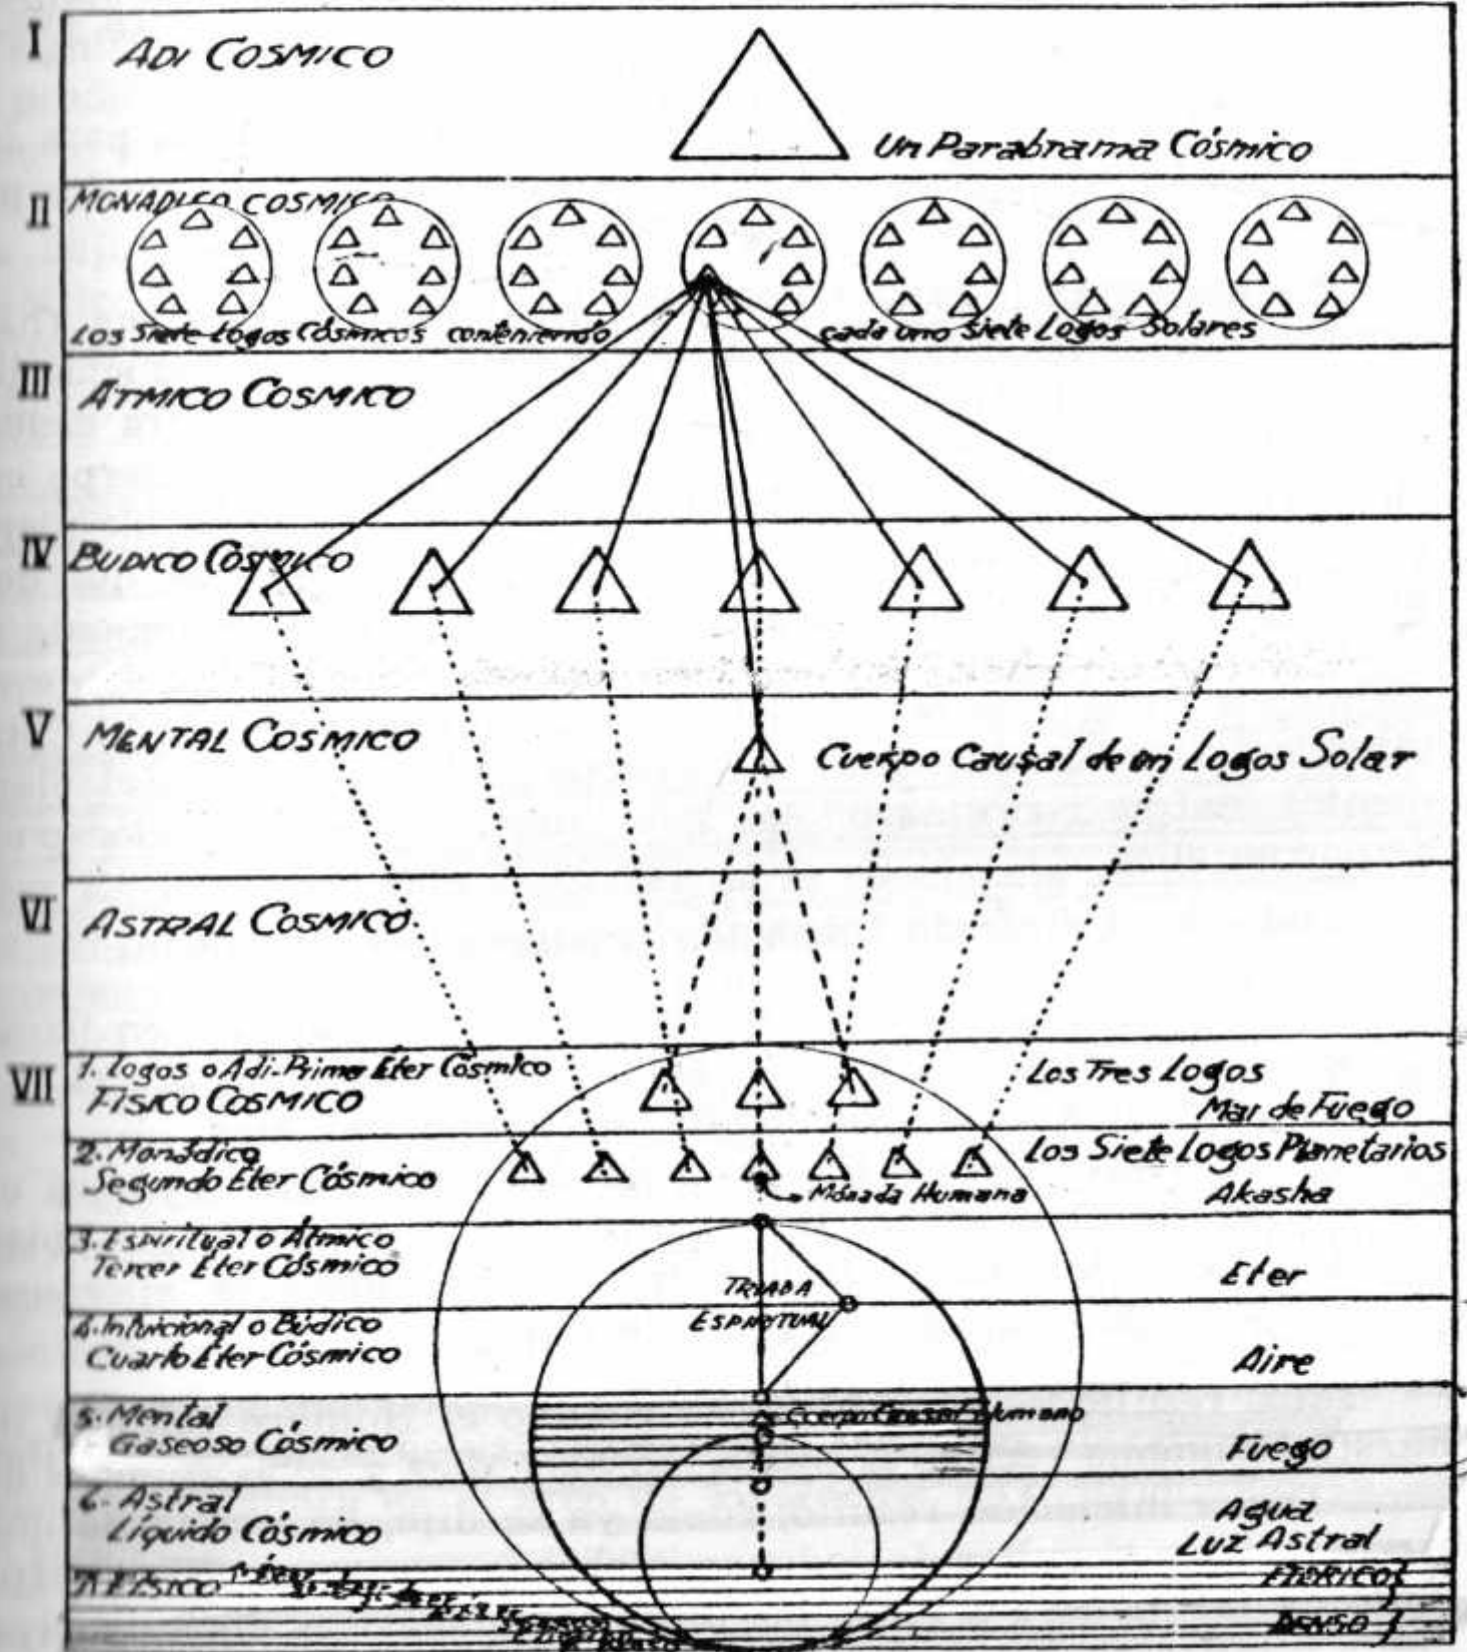 I
ADI COSMICO
Un Parabrama Cósmico
II
MONADICO COSMICO
Los Siete Logos Cósmicos conteniendo cada uno siete Logos Solares
III
ATMICO COSMICO
IV
BUDICO COSMICO
V
MENTAL COSMICO
Cuerpo Causal de un Logos Solar
VI
ASTRAL COSMICO
VII
1. Logos o Adi-Primer Éter Cósmico
FISICO COSMICO
Los Tres Logos
Mar de Fuego
2. Monádico
Segundo Éter Cósmico
Los Siete Logos Planetarios
Mónada Humana
Akasha
3. Espiritual o Átmico
Tercer Éter Cósmico
Eter
TRIADA
ESPIRITUAL
4. Intuicional o Búdico
Cuarto Éter Cósmico
Aire
5. Mental
Gaseoso Cósmico
Cuerpo Causal Humano
Fuego
6. Astral
Líquido Cósmico
Agua
Luz Astral
7. FISICO
ETERICO
DENSO